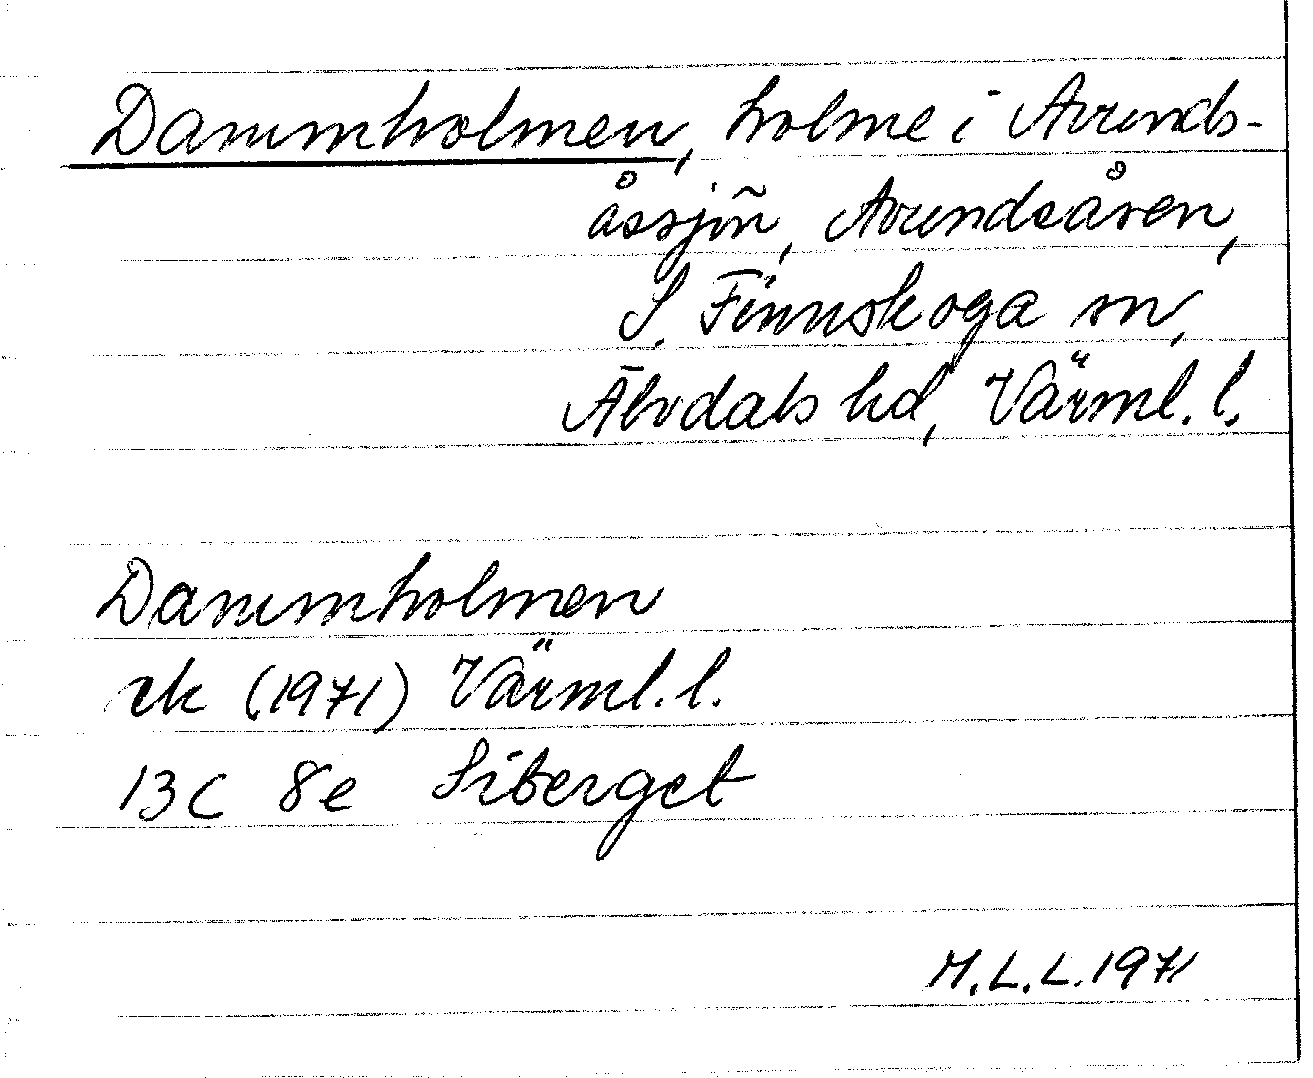 Dammholmen, holme i Avunds-
åssjön, Avundsåsen,
S. Finnskoga sn,
Älvdals hd, Värml. l.
Dammholmen
ek (1971) Värml. l.
13C 8e Siberget
M.L.L. 1971